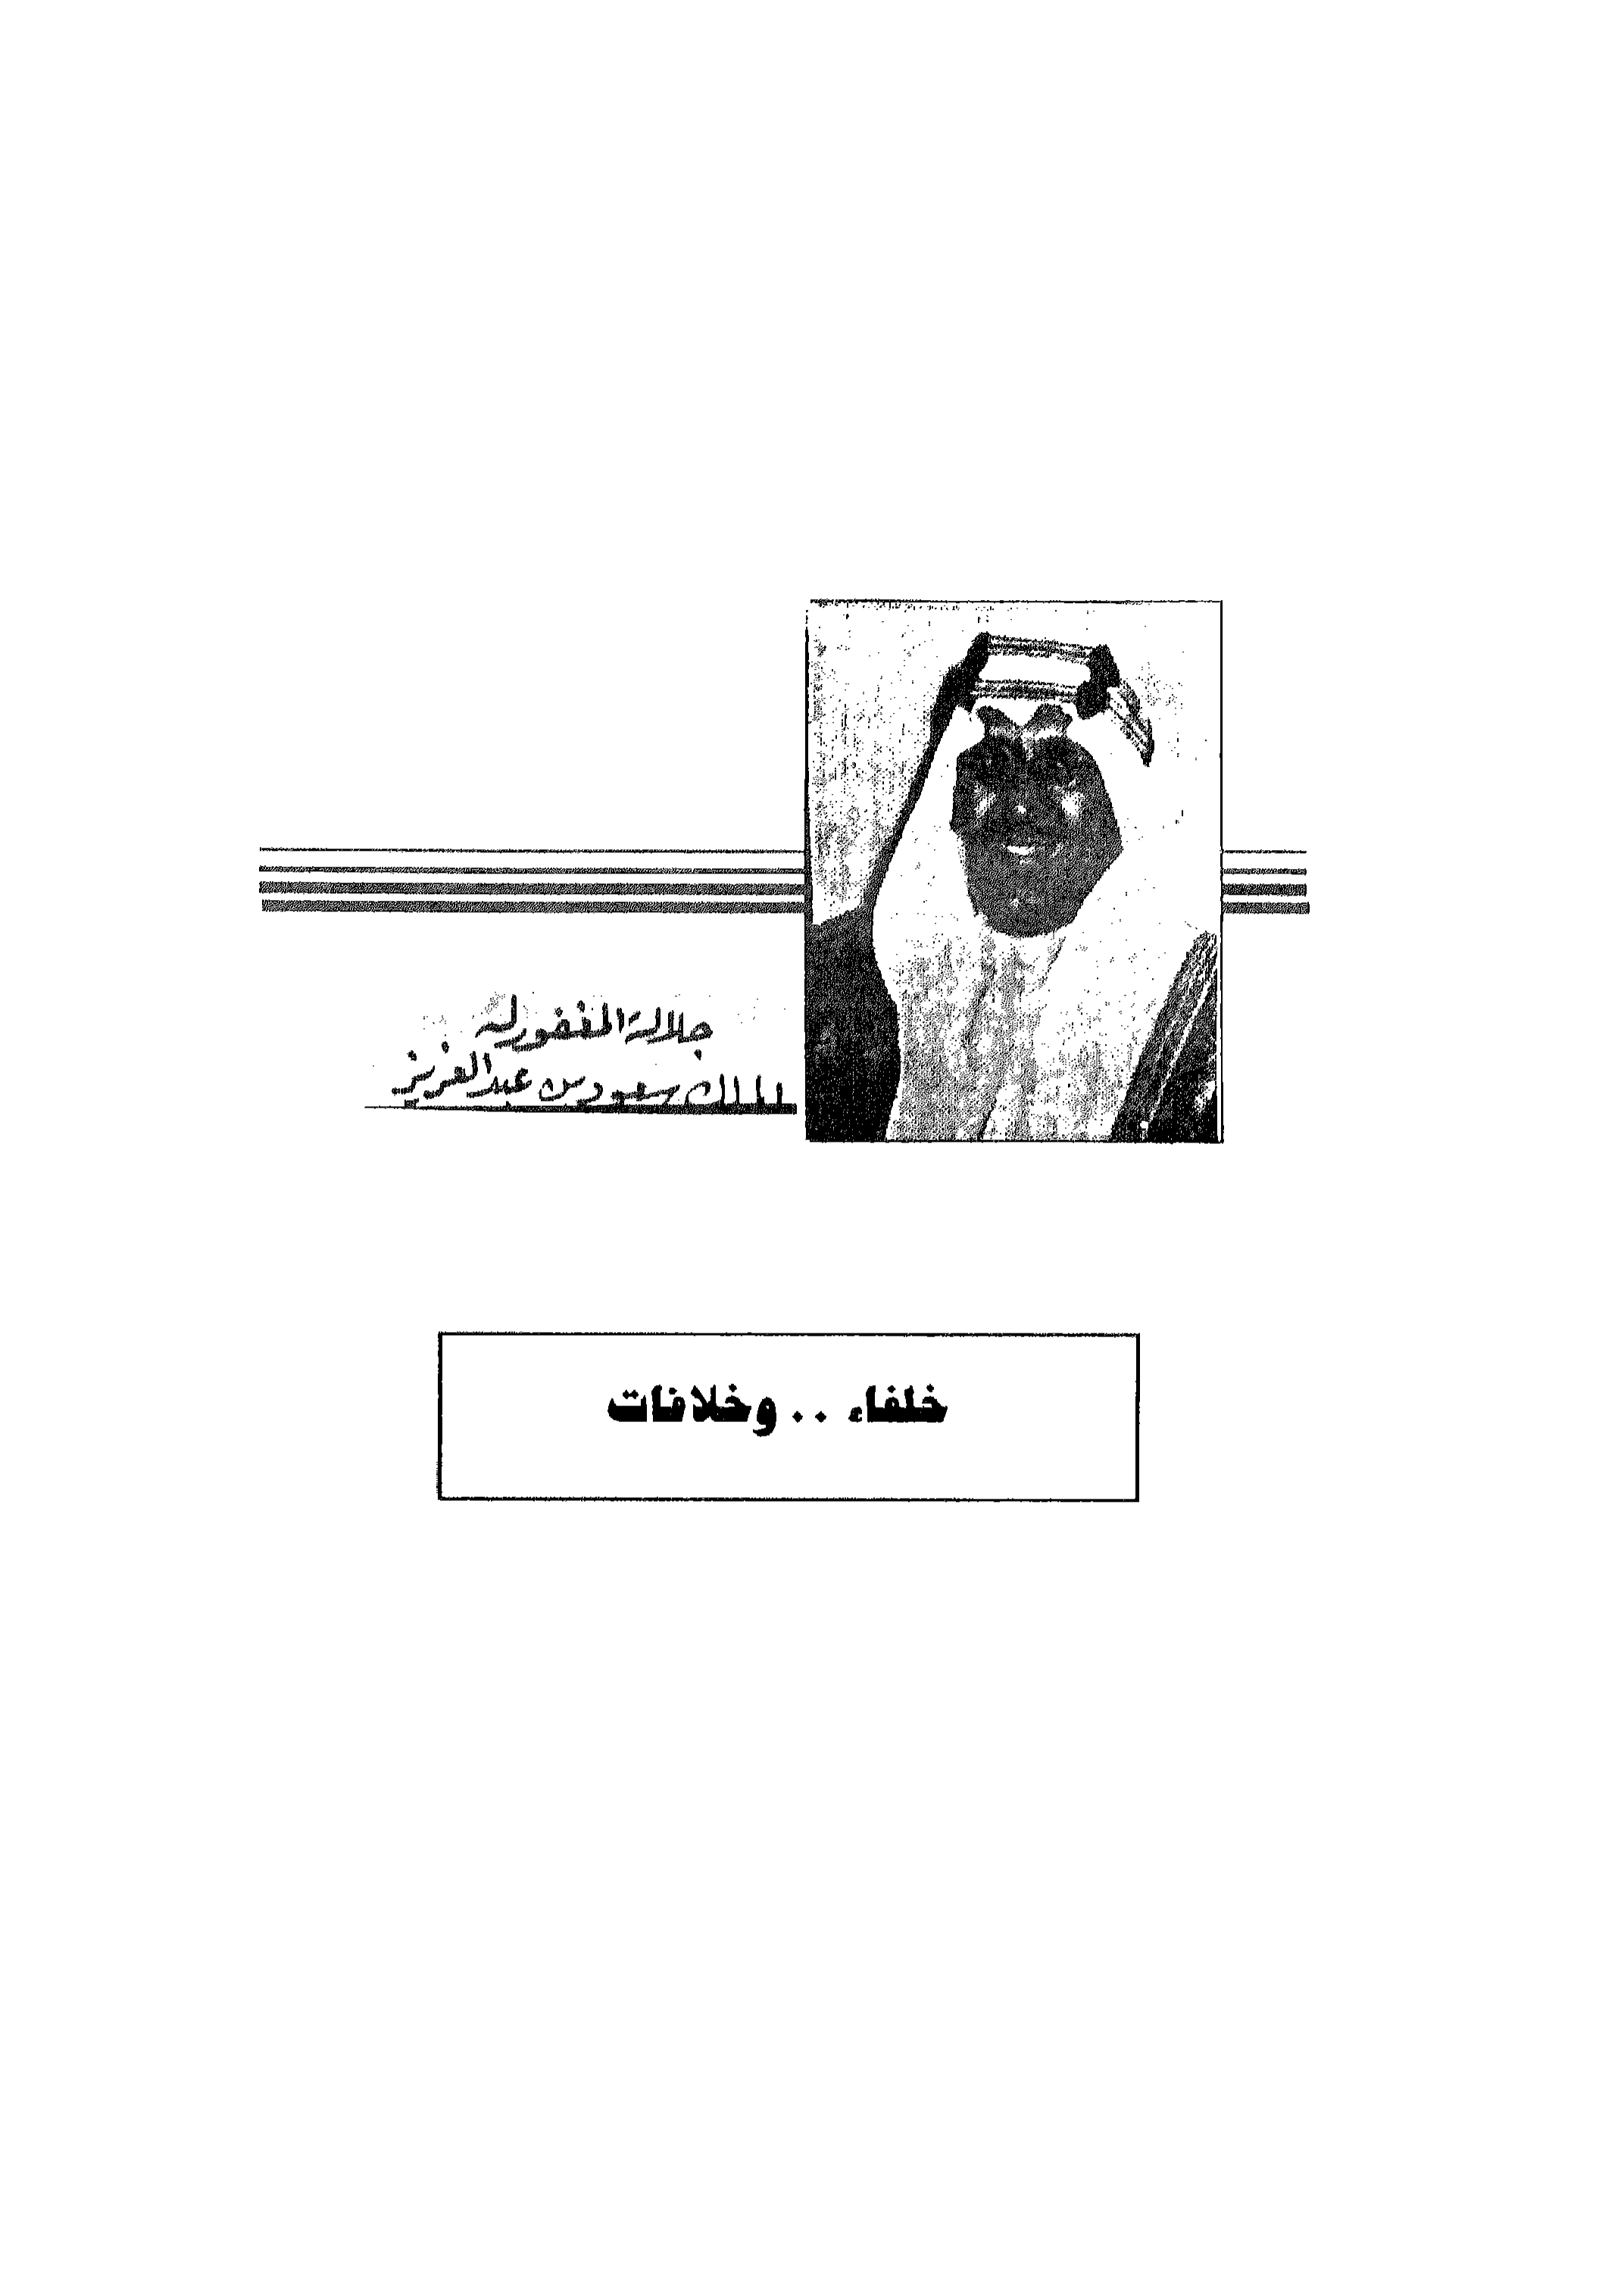 جلالة المغفور له
الملك سعود بن عبد العزيز
خلفاء .. وخلافات